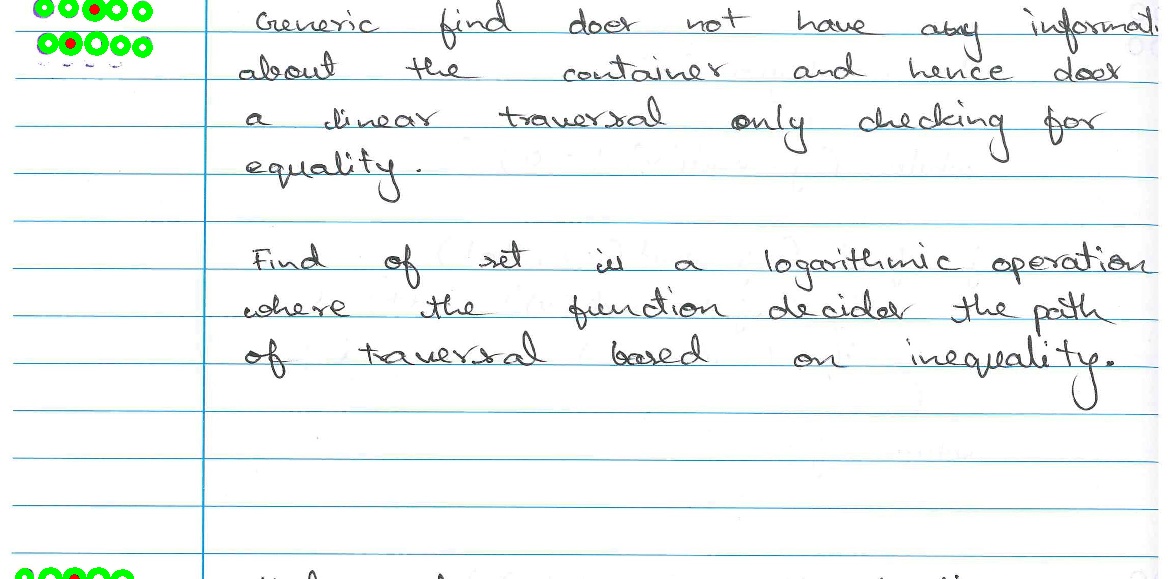 Generic find does not have any informat
about the container and hence does
a linear traversal only checking for
equality.
Find of set is a logarithmic operation
where the function decides the path
of traversal based on inequality.